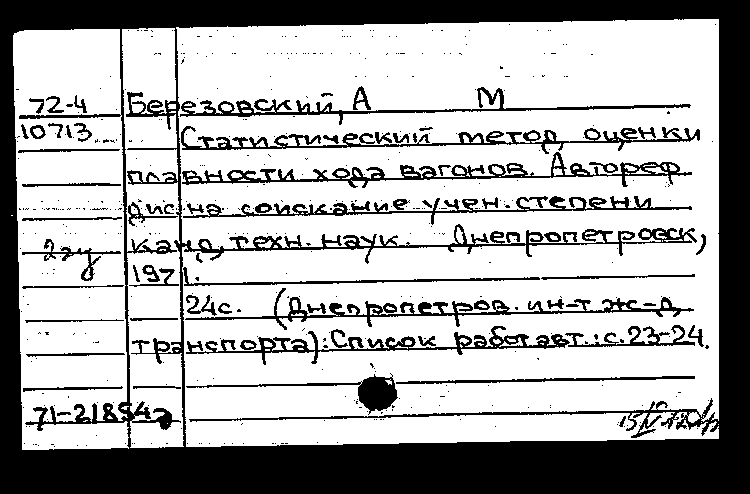 72-4 Березовский, А М
10713 Статистический метод оценки
плавности хода вагонов. Автореф
дис на соискание учен. степени
2 эу канд. техн. наук. Днепропетровск,
1971.
24с. (Днепропетров. ин-т ж-д
транспорта). Список работ авт.: с. 23-24.
71-21854